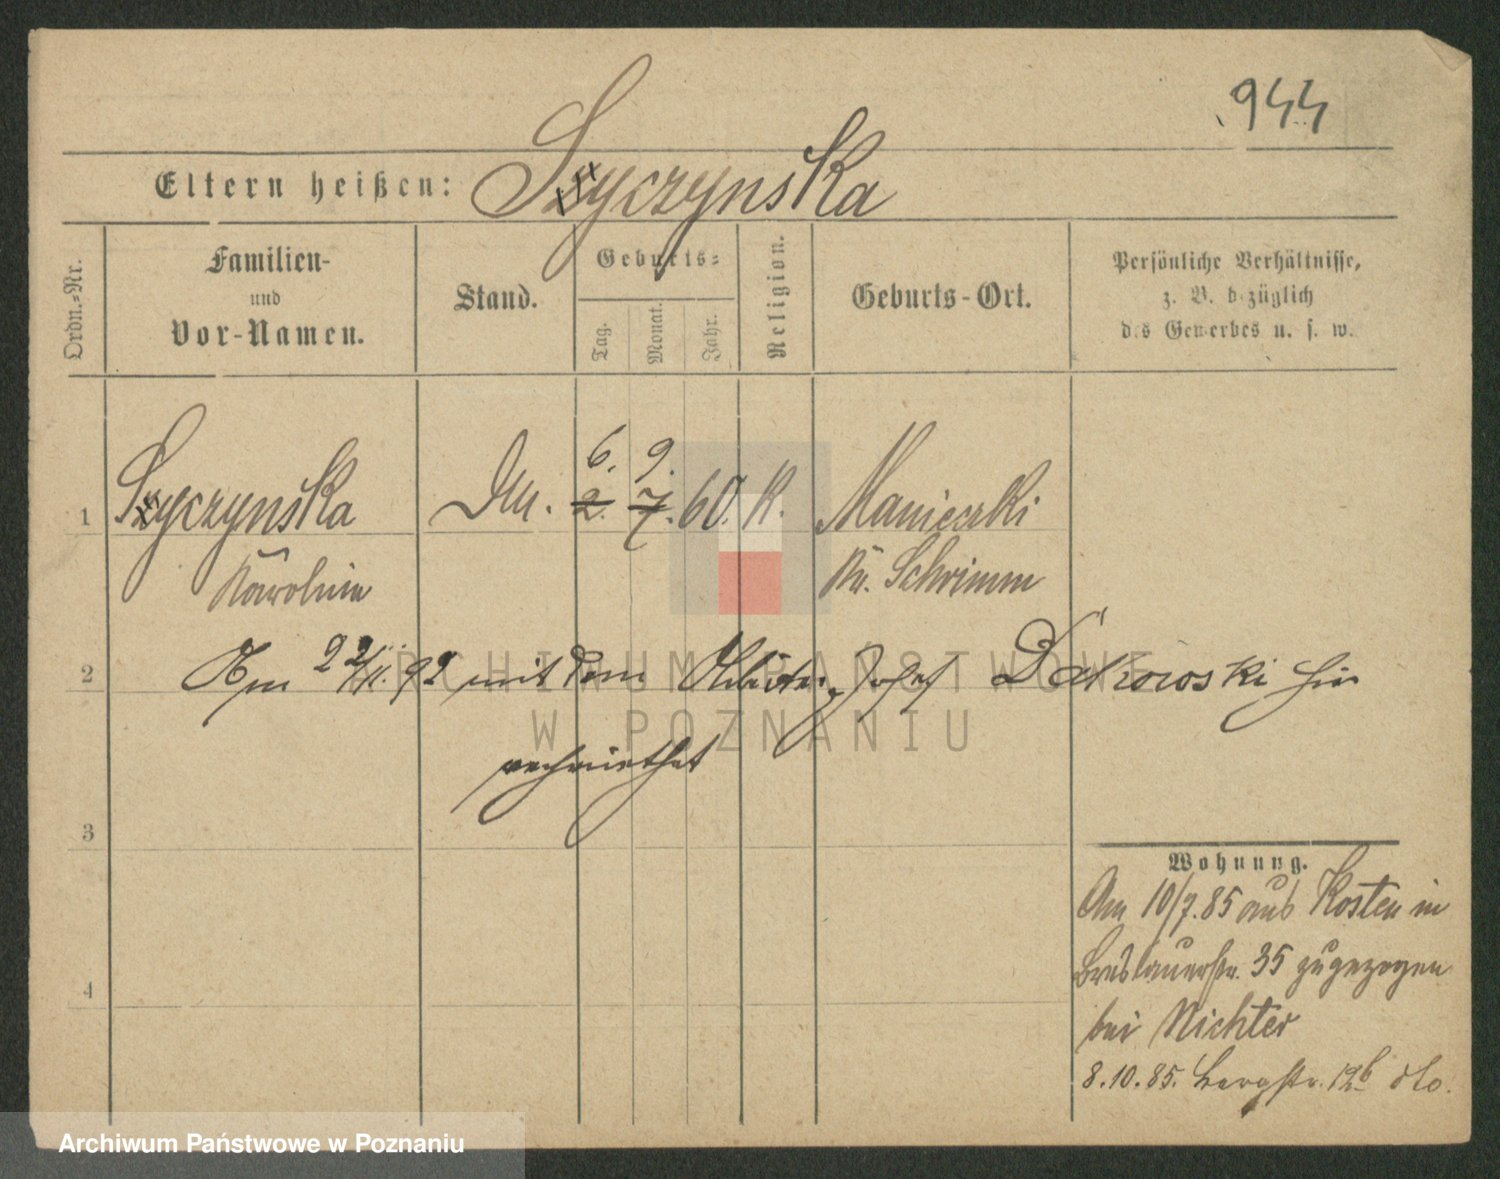 944
Eltern heißen: Szyczynska
Ordn.-Nr.
Familien-
und
Vor-Namen.
Stand.
Geburts-
Tag.
Monat.
Jahr.
Religion.
Geburts-Ort.
Persönliche Verhältnisse,
z. B. bezüglich
des Gewerbes u. s. w.
6. 9.
1 Szyczynska 2. 7. 60. K. Manieczki
Karolina Kr. Schrimm
2 Am 22/11. 92 mit dem Arbeiter Josef hier
verheirathet
3
4
Wohnung.
Am 10/7.85 aus Kosten in
Breslauerstr. 35 zugezogen
bei Richter
8.10.85. Bergstr. 12b dto.
ARCHIWUM PAŃSTWOWE
W POZNANIU
Archiwum Państwowe w Poznaniu